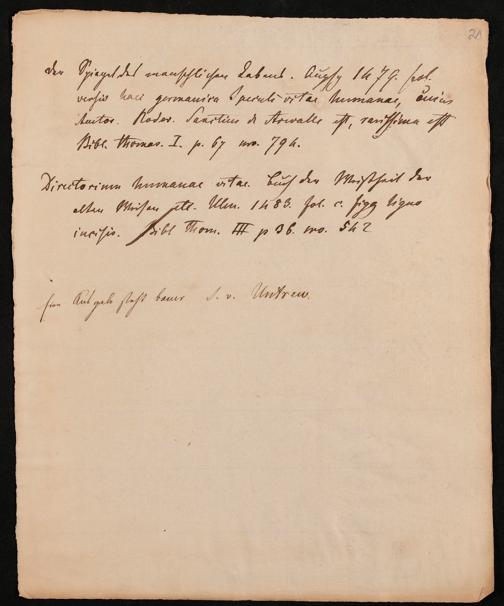 21
der Spiegel des menschlichen Lebens. Augsp 1479. fol.
versio haec germanica Speculi vitae humanae, cuius
Autor. Roder. Sanctius de Arevallo est, rarissima est
Bibl. Thomas. I. p. 67 no. 794.
Directorium humanae vitae. Buch der Weißheit der
alten Weisen Ulm. 1483. fol. c. figg ligno
incisis. Bibl Thom. III p 36. no. 542
s. v. Untreu.